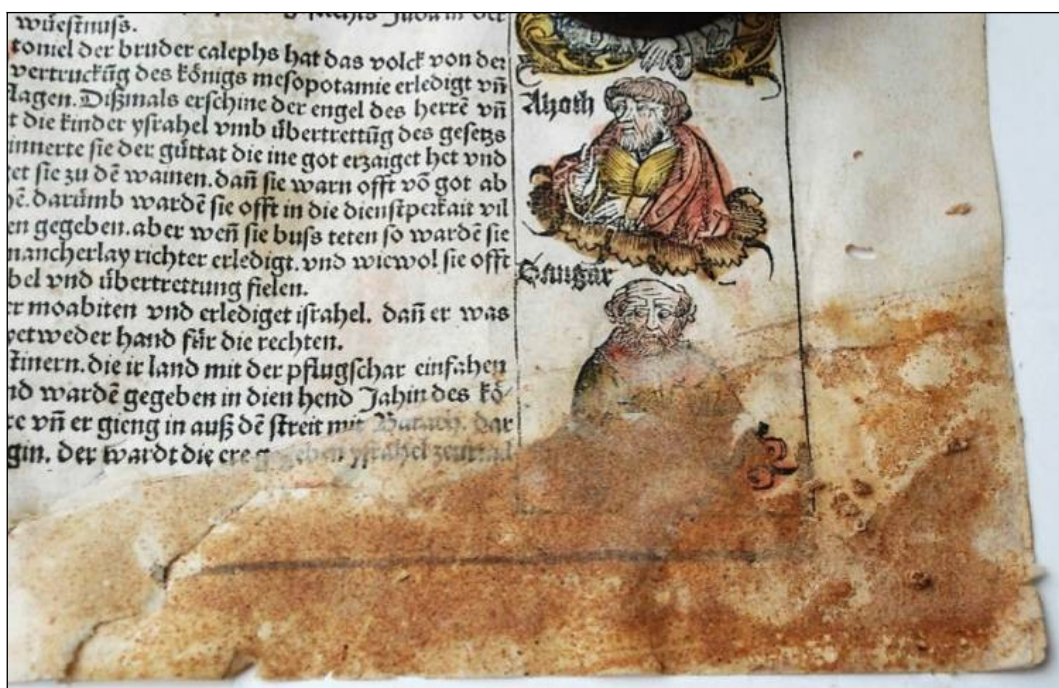 wüestnuss.
toniel der bruder calephs hat das volck von der
vertruckūg des königs mesopotamie erledigt vñ
lagen. Dißmals erschine der engel des herrē vñ
t die kinder ysrahel vmb übertrettūg des gesetzs
innerte sie der güttat die ine got erzaiget het vnd
et sie zu dē wainen. dañ sie warn offt vō got ab
hē. darūmb wardē sie offt in die dienstperkait vil
en gegeben. aber weñ sie buss teten so wardē sie
mancherlay richter erledigt. vnd wiewol sie offt
bel vnd übertrettung fielen.
er moabiten vnd erlediget israhel. dañ er was
yetweder hand für die rechten.
stinern. die ir land mit der pflugschar einfahen
nd wardē gegeben in dien hend Jahin des kö-
re vñ er gieng in auß dē streit mit Barach. dar
gin. der wardt die ere gegeben ysrahel
Ahoth
Sangar